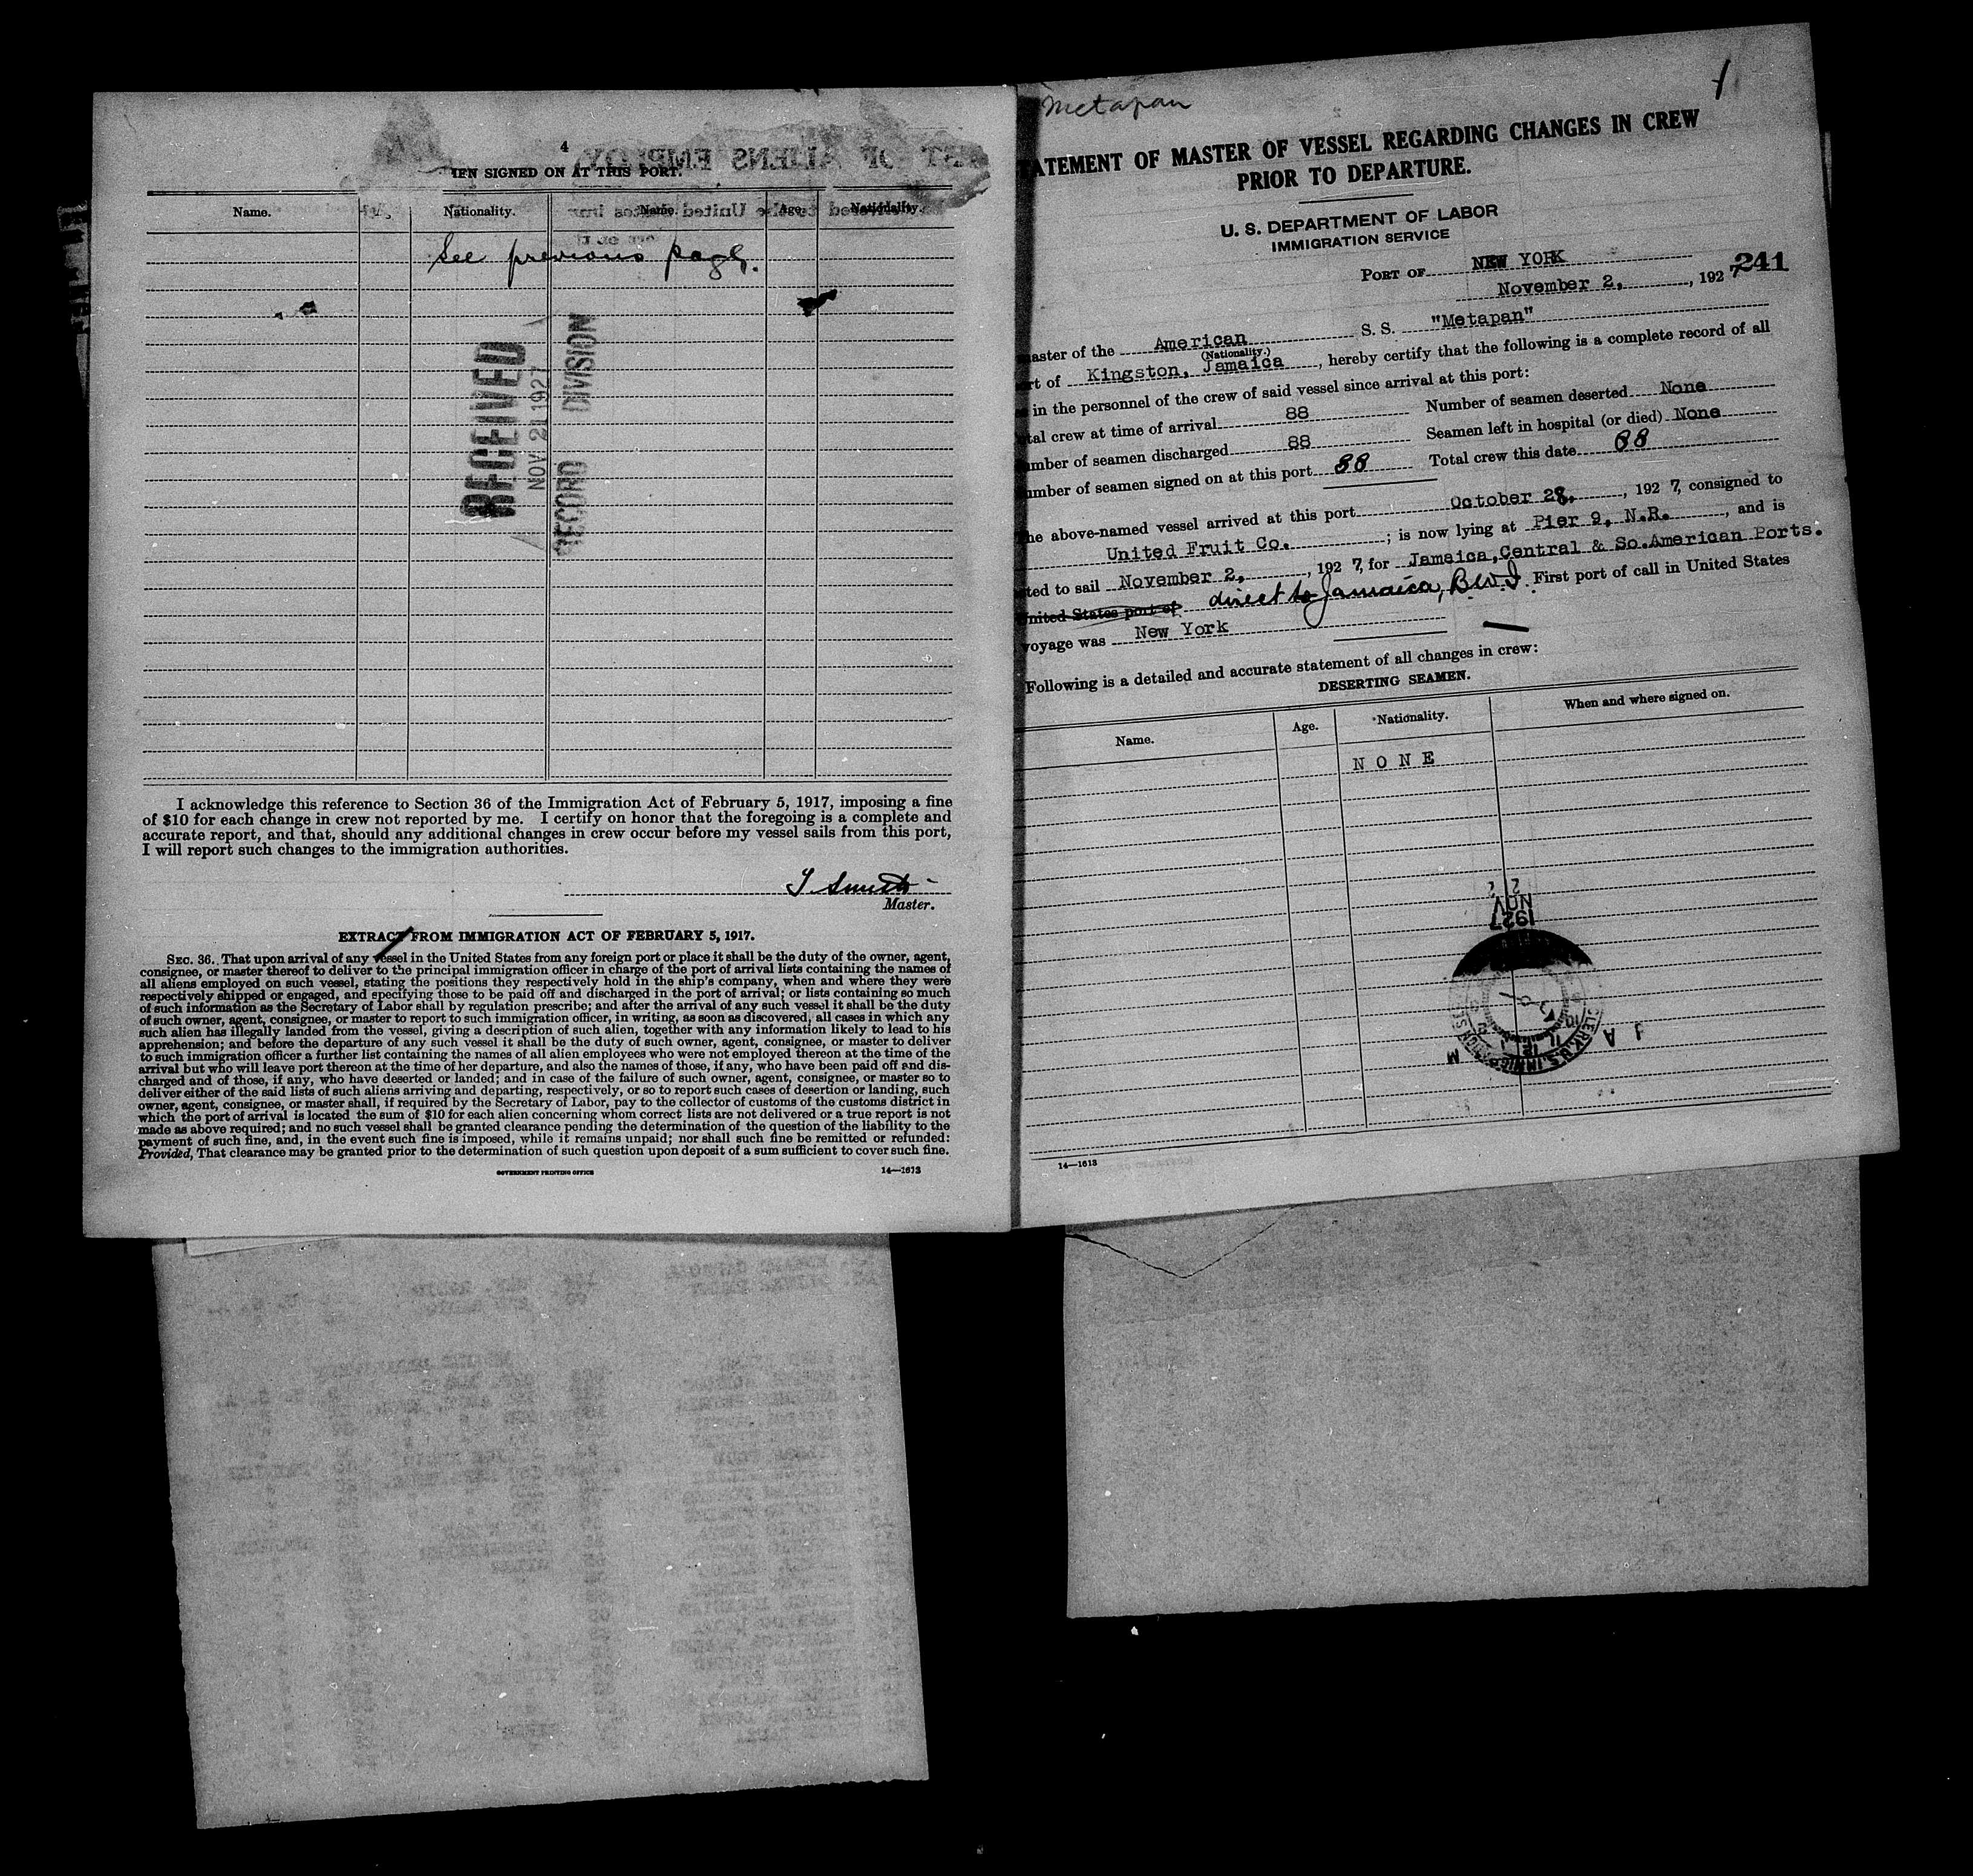 4
EN SIGNED ON AT THIS PORT.
Name. Nationality. Name. Age. Nationality.
See previous page.
RECEIVED
NOV 21 1927
RECORD DIVISION
I acknowledge this reference to Section 36 of the Immigration Act of February 5, 1917, imposing a fine
of $10 for each change in crew not reported by me. I certify on honor that the foregoing is a complete and
accurate report, and that, should any additional changes in crew occur before my vessel sails from this port,
I will report such changes to the immigration authorities.
Master.
EXTRACT FROM IMMIGRATION ACT OF FEBRUARY 5, 1917.
SEC. 36. That upon arrival of any vessel in the United States from any foreign port or place it shall be the duty of the owner, agent,
consignee, or master thereof to deliver to the principal immigration officer in charge of the port of arrival lists containing the names of
all aliens employed on such vessel, stating the positions they respectively hold in the ship's company, when and where they were
respectively shipped or engaged, and specifying those to be paid off and discharged in the port of arrival; or lists containing so much
of such information as the Secretary of Labor shall by regulation prescribe; and after the arrival of any such vessel it shall be the duty
of such owner, agent, consignee, or master to report to such immigration officer, in writing, as soon as discovered, all cases in which any
such alien has illegally landed from the vessel, giving a description of such alien, together with any information likely to lead to his
apprehension; and before the departure of any such vessel it shall be the duty of such owner, agent, consignee, or master to deliver
to such immigration officer a further list containing the names of all alien employees who were not employed thereon at the time of the
arrival but who will leave port thereon at the time of her departure, and also the names of those, if any, who have been paid off and dis-
charged and of those, if any, who have deserted or landed; and in case of the failure of such owner, agent, consignee, or master so to
deliver either of the said lists of such aliens arriving and departing, respectively, or so to report such cases of desertion or landing, such
owner, agent, consignee, or master shall, if required by the Secretary of Labor, pay to the collector of customs of the customs district in
which the port of arrival is located the sum of $10 for each alien concerning whom correct lists are not delivered or a true report is not
made as above required; and no such vessel shall be granted clearance pending the determination of the question of the liability to the
payment of such fine, and, in the event such fine is imposed, while it remains unpaid; nor shall such fine be remitted or refunded:
Provided, That clearance may be granted prior to the determination of such question upon deposit of a sum sufficient to cover such fine.
GOVERNMENT PRINTING OFFICE 14—1613
Metapan 1
TATEMENT OF MASTER OF VESSEL REGARDING CHANGES IN CREW
PRIOR TO DEPARTURE.
U. S. DEPARTMENT OF LABOR
IMMIGRATION SERVICE
PORT OF NEW YORK
241
November 2, , 1927
aster of the American S. S. "Metapan"
(Nationality.)
rt of Kingston, Jamaica , hereby certify that the following is a complete record of all
in the personnel of the crew of said vessel since arrival at this port:
tal crew at time of arrival 88 Number of seamen deserted None
mber of seamen discharged 88 Seamen left in hospital (or died) None
umber of seamen signed on at this port 88 Total crew this date 88
he above-named vessel arrived at this port October 28, , 1927, consigned to
United Fruit Co. ; is now lying at Pier 9, N.R. , and is
ted to sail November 2, , 1927, for Jamaica, Central & So. American Ports.
nited States port of direct to Jamaica, B.W.I. First port of call in United States
voyage was New York
Following is a detailed and accurate statement of all changes in crew:
DESERTING SEAMEN.
Name. Age. Nationality. When and where signed on.
NONE
1927
NOV
14—1613